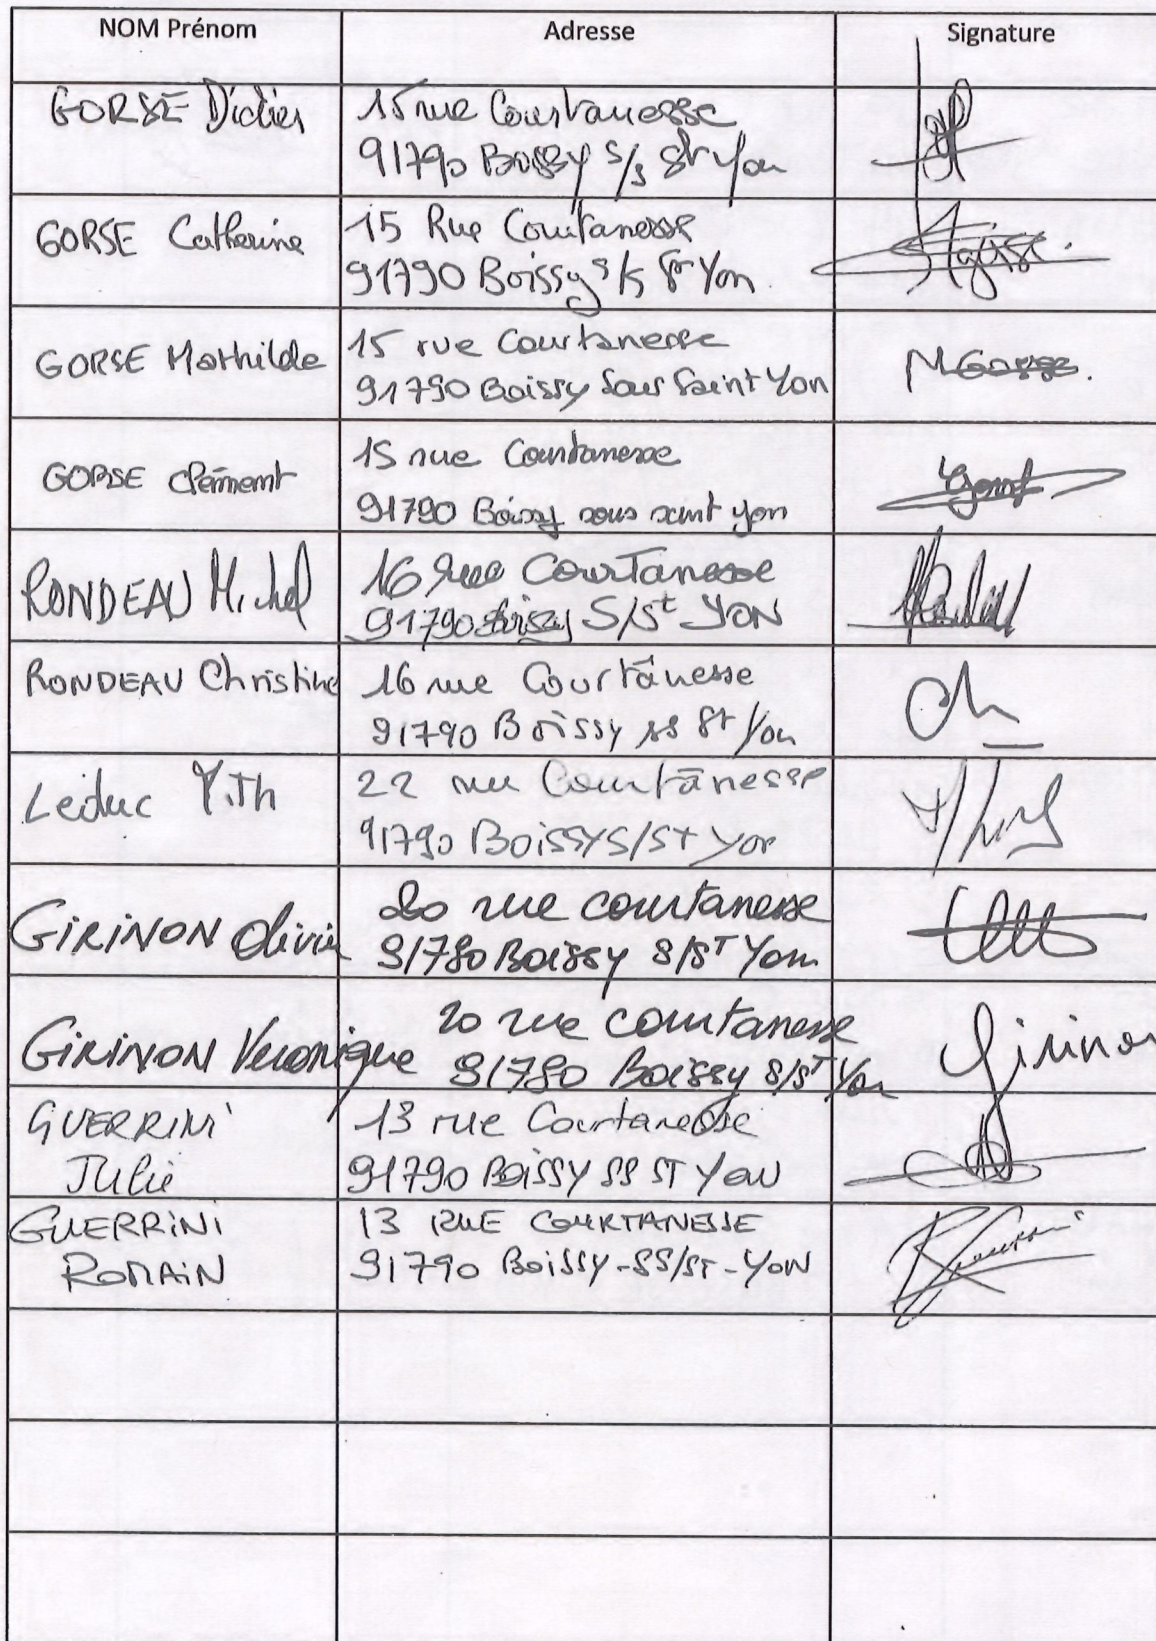 NOM Prénom Adresse Signature
GORSE Didier 15 rue Courtanesse
91790 Boissy s/s St Yon
GORSE Catherine 15 Rue Courtanesse
91790 Boissy s/s St Yon
GORSE Mathilde 15 rue Courtanesse
91790 Boissy Sous Saint Yon
M Gorse.
GORSE Clément 15 rue Courtanesse
91790 Boissy sous saint yon
RONDEAU Michel 16 rue Courtanesse
91790 Boissy S/St YON
RONDEAU Christine 16 rue Courtanesse
91790 Boissy ss St Yon
Leduc 22 rue Courtanesse
91790 Boissy S/St Yon
GIRINON Olivier 20 rue courtanesse
91780 Boissy S/ST Yon
GIRINON Veronique 20 rue courtanesse
91780 Boissy S/ST Yon
Girinon
GUERRINI 13 rue Courtanesse
Julie 91790 Boissy SS ST Yon
GUERRINI 13 RUE COURTANESSE
ROMAIN 91790 Boissy-SS/ST-YON